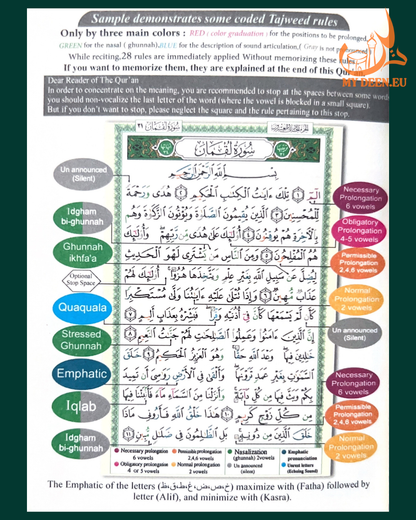 Sample demonstrates some coded Tajweed rules
Only by three main colors : RED ( color graduation) : for the positions to be prolonged,
GREEN for the nasal ( ghunnah), BLUE for the description of sound articulation, ( Gray is not pronounced)
While reciting, 28 rules are immediately applied Without memorizing these rules
If you want to memorize them, they are explained at the end of this Qur
MY DEEN.EU
Dear Reader of The Qur'an
In order to concentrate on the meaning, you are recommended to stop at the spaces between some words
you should non-vocalize the last letter of the word (where the vowel is blocked in a small square).
But if you don't want to stop, please neglect the square and the rule pertaining to this stop.
سُورَةُ لُقْمَان ٣١
سُورَةُ لُقْمَان
بِسْمِ اللَّهِ الرَّحْمَٰنِ الرَّحِيمِ
الٓمٓ ١ تِلْكَ ءَايَٰتُ الْكِتَٰبِ الْحَكِيمِ ٢ هُدًى وَرَحْمَةً
لِّلْمُحْسِنِينَ ٣ الَّذِينَ يُقِيمُونَ الصَّلَوٰةَ وَيُؤْتُونَ الزَّكَوٰةَ وَهُم
بِالْءَاخِرَةِ هُمْ يُوقِنُونَ ٤ أُولَٰئِكَ عَلَىٰ هُدًى مِّن رَّبِّهِمْ وَأُولَٰئِكَ
هُمُ الْمُفْلِحُونَ ٥ وَمِنَ النَّاسِ مَن يَشْتَرِي لَهْوَ الْحَدِيثِ
لِيُضِلَّ عَن سَبِيلِ اللَّهِ بِغَيْرِ عِلْمٍ وَيَتَّخِذَهَا هُزُوًا أُولَٰئِكَ لَهُمْ
عَذَابٌ مُّهِينٌ ٦ وَإِذَا تُتْلَىٰ عَلَيْهِ ءَايَٰتُنَا وَلَّىٰ مُسْتَكْبِرًا
كَأَن لَّمْ يَسْمَعْهَا كَأَنَّ فِي أُذُنَيْهِ وَقْرًا فَبَشِّرْهُ بِعَذَابٍ أَلِيمٍ ٧
إِنَّ الَّذِينَ ءَامَنُوا وَعَمِلُوا الصَّٰلِحَٰتِ لَهُمْ جَنَّٰتُ النَّعِيمِ ٨
خَٰلِدِينَ فِيهَا وَعْدَ اللَّهِ حَقًّا وَهُوَ الْعَزِيزُ الْحَكِيمُ ٩ خَلَقَ
السَّمَٰوَٰتِ بِغَيْرِ عَمَدٍ تَرَوْنَهَا وَأَلْقَىٰ فِي الْأَرْضِ رَوَٰسِيَ أَن تَمِيدَ
بِكُمْ وَبَثَّ فِيهَا مِن كُلِّ دَابَّةٍ وَأَنزَلْنَا مِنَ السَّمَاءِ مَاءً فَأَنبَتْنَا فِيهَا
مِن كُلِّ زَوْجٍ كَرِيمٍ ١٠ هَٰذَا خَلْقُ اللَّهِ فَأَرُونِي مَاذَا
خَلَقَ الَّذِينَ مِن دُونِهِ بَلِ الظَّٰلِمُونَ فِي ضَلَٰلٍ مُّبِينٍ ١١
Un announced
(Silent)
Idgham
bi-ghunnah
Ghunnah
ikhfa'a
Optional
Stop Space
Quaquala
Stressed
Ghunnah
Emphatic
Iqlab
Idgham
bi-ghunnah
Necessary
Prolongation
6 vowels
Obligatory
Prolongation
4-5 vowels
Permissible
Prolongation
2,4,6 vowels
Normal
Prolongation
2 vowels
Un announced
(Silent)
Necessary
Prolongation
6 vowels
Permissible
Prolongation
2,4,6 vowels
Normal
Prolongation
2 vowels
Necessary prolongation 6 vowels
Permissible prolongation 2,4,6 vowels
Nasalization (ghunnah) 2vowels
Emphatic pronunciation
Obligatory prolongation 4 or 5 vowels
Normal prolongation 2 vowels
Un announced (silent)
Unrest letters (Echoing Sound)
The Emphatic of the letters (خ،ص،ض،غ،ط،ق،ظ) maximize with (Fatha) followed by
letter (Alif), and minimize with (Kasra).